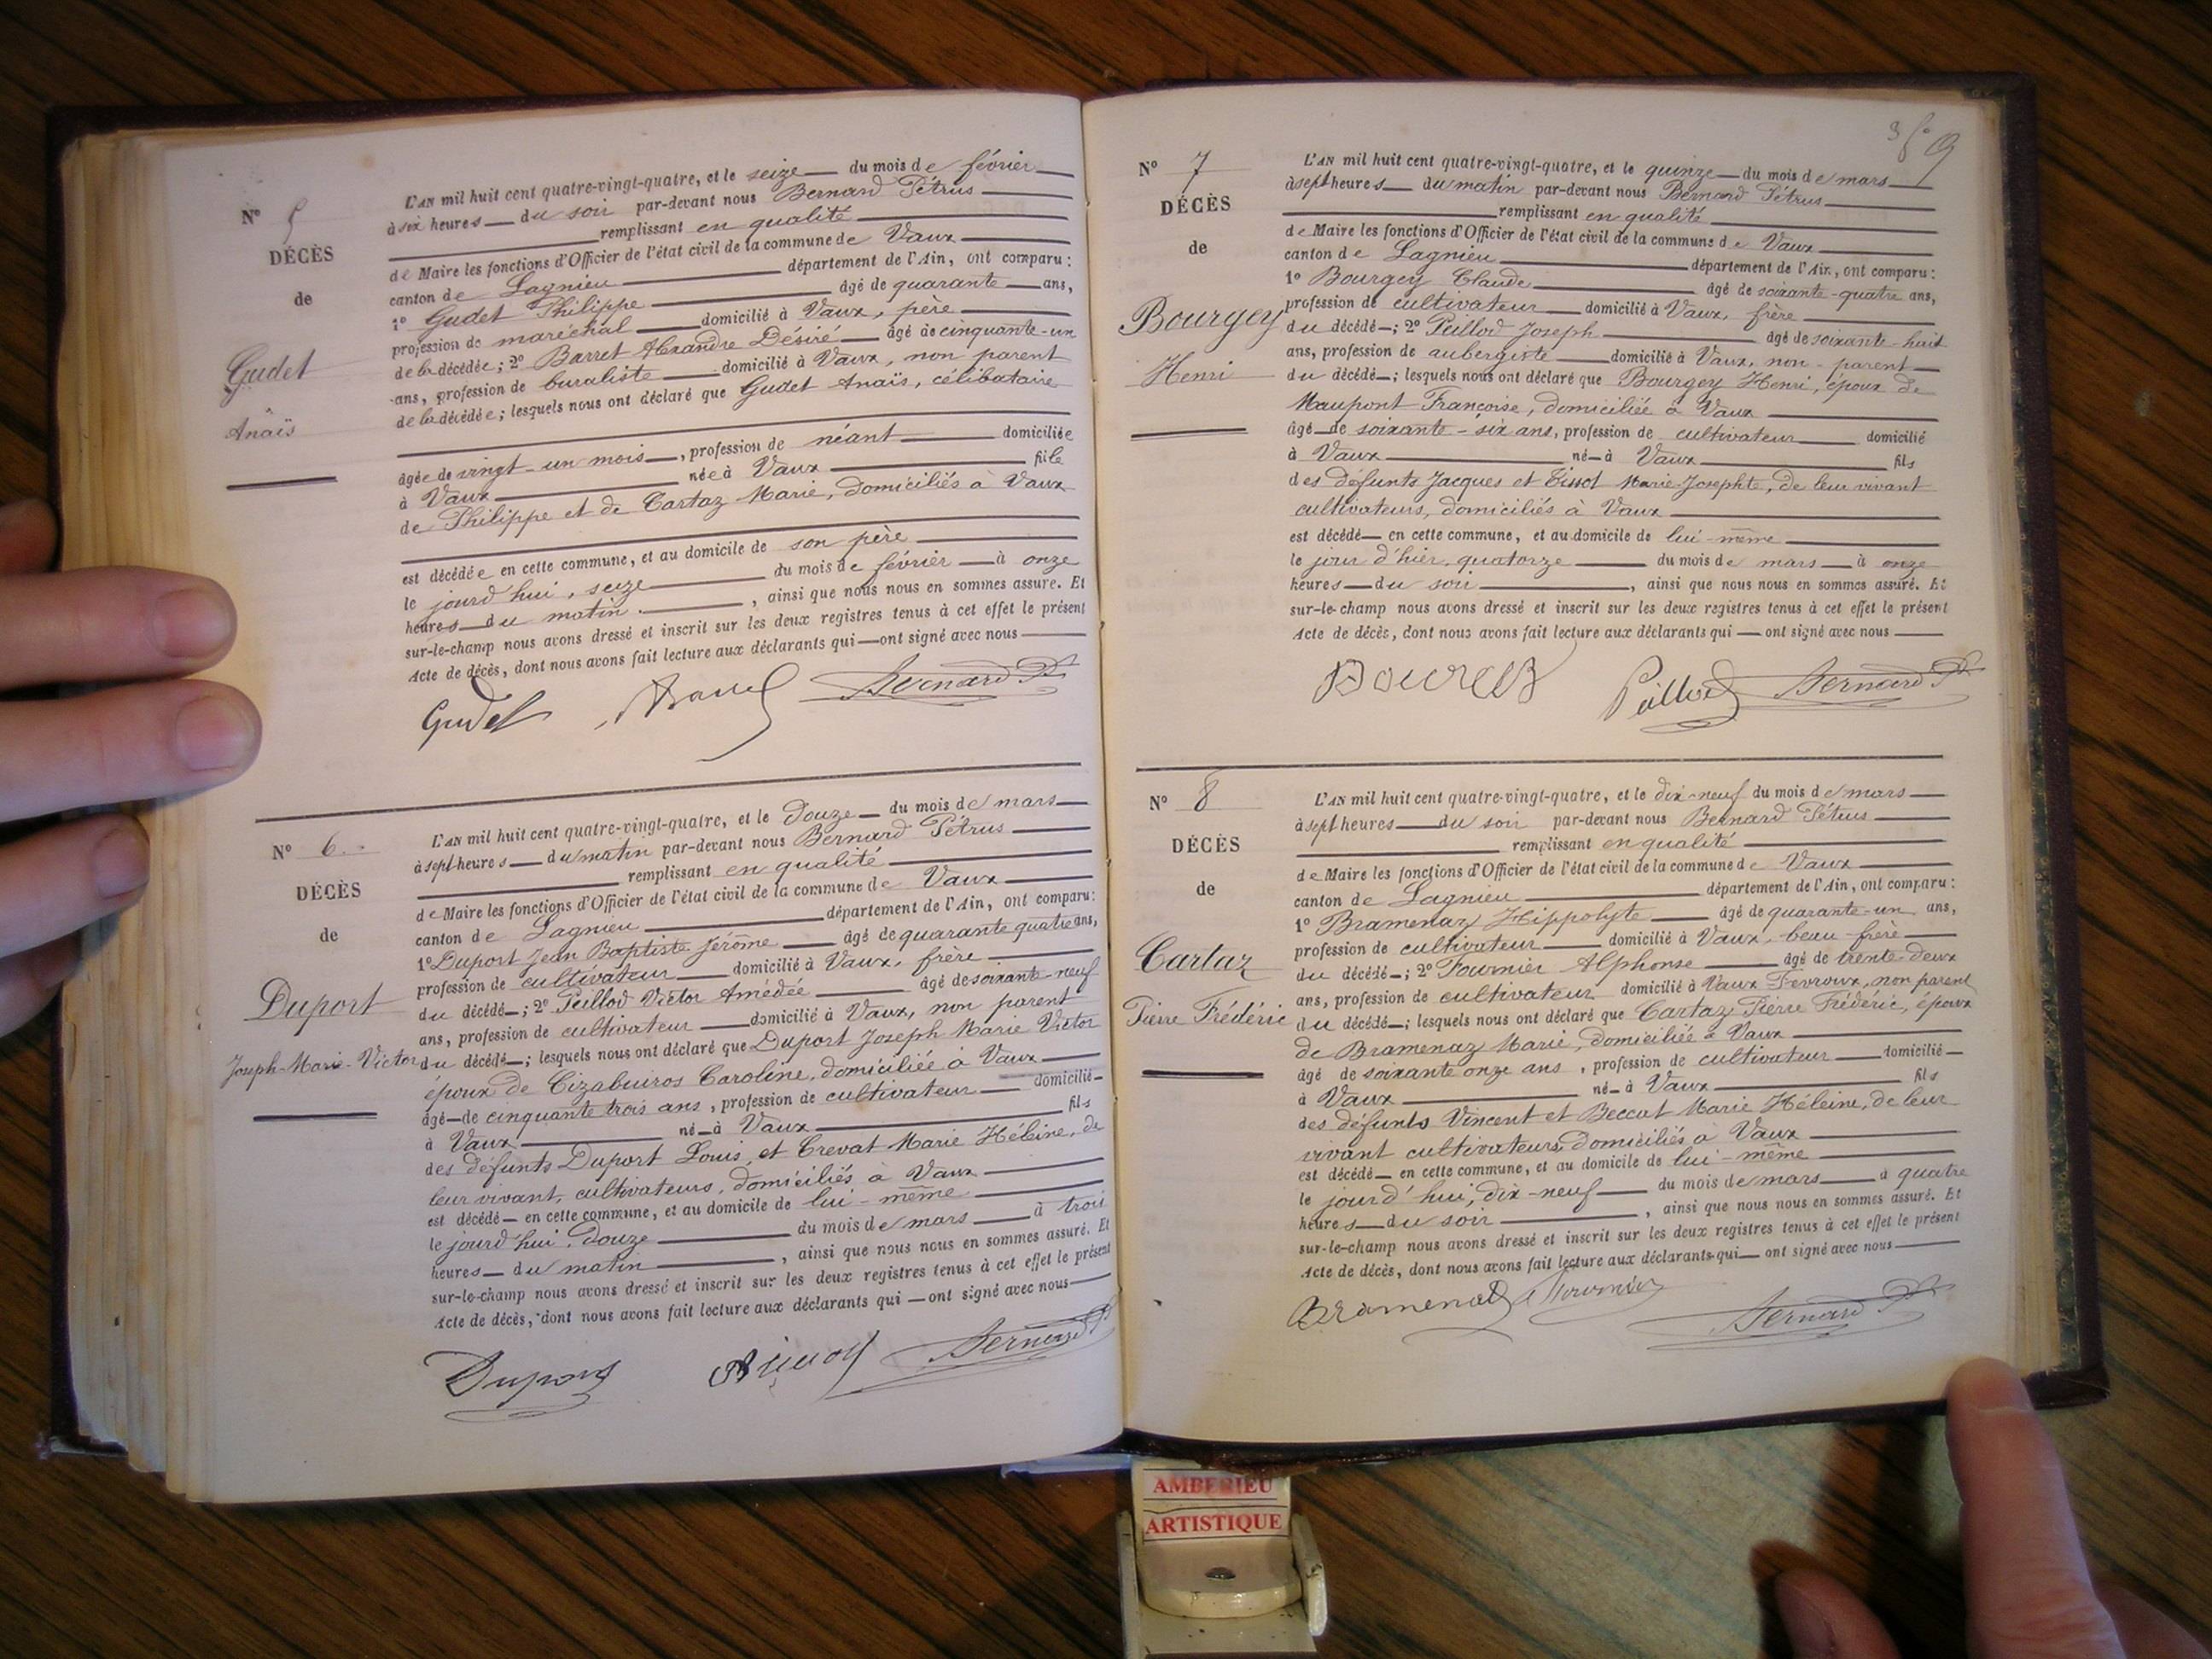 N° 5
DÉCÈS
de
Gudet
Anaïs
L'AN mil huit cent quatre-vingt-quatre, et le seize du mois de février
à six heures du soir par-devant nous Bernard Pétrus
remplissant en qualité
de Maire les fonctions d'Officier de l'état civil de la commune de Vaux
canton de Lagnieu département de l'Ain, ont comparu :
1° Gudet Philippe âgé de quarante ans,
profession de maréchal domicilié à Vaux, père
de la décédée ; 2° Barret Alexandre Désiré âgé de cinquante-un
ans, profession de buraliste domicilié à Vaux, non parent
de la décédée ; lesquels nous ont déclaré que Gudet Anaïs, célibataire
âgée de vingt-un mois, profession de néant domiciliée
à Vaux née à Vaux fille
de Philippe et de Cartaz Marie, domiciliés à Vaux
est décédée en cette commune, et au domicile de son père
le jourd'hui, seize du mois de février à onze
heures du matin, ainsi que nous nous en sommes assuré. Et
sur-le-champ nous avons dressé et inscrit sur les deux registres tenus à cet effet le présent
Acte de décès, dont nous avons fait lecture aux déclarants qui ont signé avec nous
Gudet Barret Bernard Pt
N° 6
DÉCÈS
de
Duport
Joseph-Marie-Victor
L'AN mil huit cent quatre-vingt-quatre, et le douze du mois de mars
à sept heures du matin par-devant nous Bernard Pétrus
remplissant en qualité
de Maire les fonctions d'Officier de l'état civil de la commune de Vaux
canton de Lagnieu département de l'Ain, ont comparu :
1° Duport Jean Baptiste Jérôme âgé de quarante quatre ans,
profession de cultivateur domicilié à Vaux, frère
du décédé ; 2° Peillod Victor Amédée âgé de soixante-neuf
ans, profession de cultivateur domicilié à Vaux, non parent
du décédé ; lesquels nous ont déclaré que Duport Joseph Marie Victor
époux de Cizabuiros Caroline, domiciliée à Vaux
âgé de cinquante trois ans, profession de cultivateur domicilié
à Vaux né à Vaux fils
des défunts Duport Louis, et Crevat Marie Héleine, de
leur vivant, cultivateurs, domiciliés à Vaux
est décédé en cette commune, et au domicile de lui-même
le jourd'hui, douze du mois de mars à trois
heures du matin, ainsi que nous nous en sommes assuré. Et
sur-le-champ nous avons dressé et inscrit sur les deux registres tenus à cet effet le présent
Acte de décès, dont nous avons fait lecture aux déclarants qui ont signé avec nous
Duport Bernard Pt
3 f° 9
N° 7
DÉCÈS
de
Bourgey
Henri
L'AN mil huit cent quatre-vingt-quatre, et le quinze du mois de mars
à sept heures du matin par-devant nous Bernard Pétrus
remplissant en qualité
de Maire les fonctions d'Officier de l'état civil de la commune de Vaux
canton de Lagnieu département de l'Ain, ont comparu :
1° Bourgey Claude âgé de soixante-quatre ans,
profession de cultivateur domicilié à Vaux, frère
du décédé ; 2° Peillod Joseph âgé de soixante-huit
ans, profession de aubergiste domicilié à Vaux, non-parent
du décédé ; lesquels nous ont déclaré que Bourgey Henri, époux de
Maupont Françoise, domiciliée à Vaux
âgé de soixante-six ans, profession de cultivateur domicilié
à Vaux né à Vaux fils
des défunts Jacques et Tissot Marie-Josephte, de leur vivant
cultivateurs, domiciliés à Vaux
est décédé en cette commune, et au domicile de lui-même
le jour d'hier, quatorze du mois de mars à onze
heures du soir, ainsi que nous nous en sommes assuré. Et
sur-le-champ nous avons dressé et inscrit sur les deux registres tenus à cet effet le présent
Acte de décès, dont nous avons fait lecture aux déclarants qui ont signé avec nous
Peillod Bernard Pt
N° 8
DÉCÈS
de
Cartaz
Pierre Frédéric
L'AN mil huit cent quatre-vingt-quatre, et le dix-neuf du mois de mars
à sept heures du soir par-devant nous Bernard Pétrus
remplissant en qualité
de Maire les fonctions d'Officier de l'état civil de la commune de Vaux
canton de Lagnieu département de l'Ain, ont comparu :
1° Bramenaz Hippolyte âgé de quarante-un ans,
profession de cultivateur domicilié à Vaux, beau-frère
du décédé ; 2° Fournier Alphonse âgé de trente-deux
ans, profession de cultivateur domicilié à Vaux Fevroux, non parent
du décédé ; lesquels nous ont déclaré que Cartaz Pierre Frédéric, époux
de Bramenaz Marie, domiciliée à Vaux
âgé de soixante onze ans, profession de cultivateur domicilié
à Vaux né à Vaux fils
des défunts Vincent et Beccat Marie Héleine, de leur
vivant cultivateurs, domiciliés à Vaux
est décédé en cette commune, et au domicile de lui-même
le jourd'hui, dix-neuf du mois de mars à quatre
heures du soir, ainsi que nous nous en sommes assuré. Et
sur-le-champ nous avons dressé et inscrit sur les deux registres tenus à cet effet le présent
Acte de décès, dont nous avons fait lecture aux déclarants qui ont signé avec nous
Bramenaz Fournier Bernard Pt
AMBERIEU
ARTISTIQUE